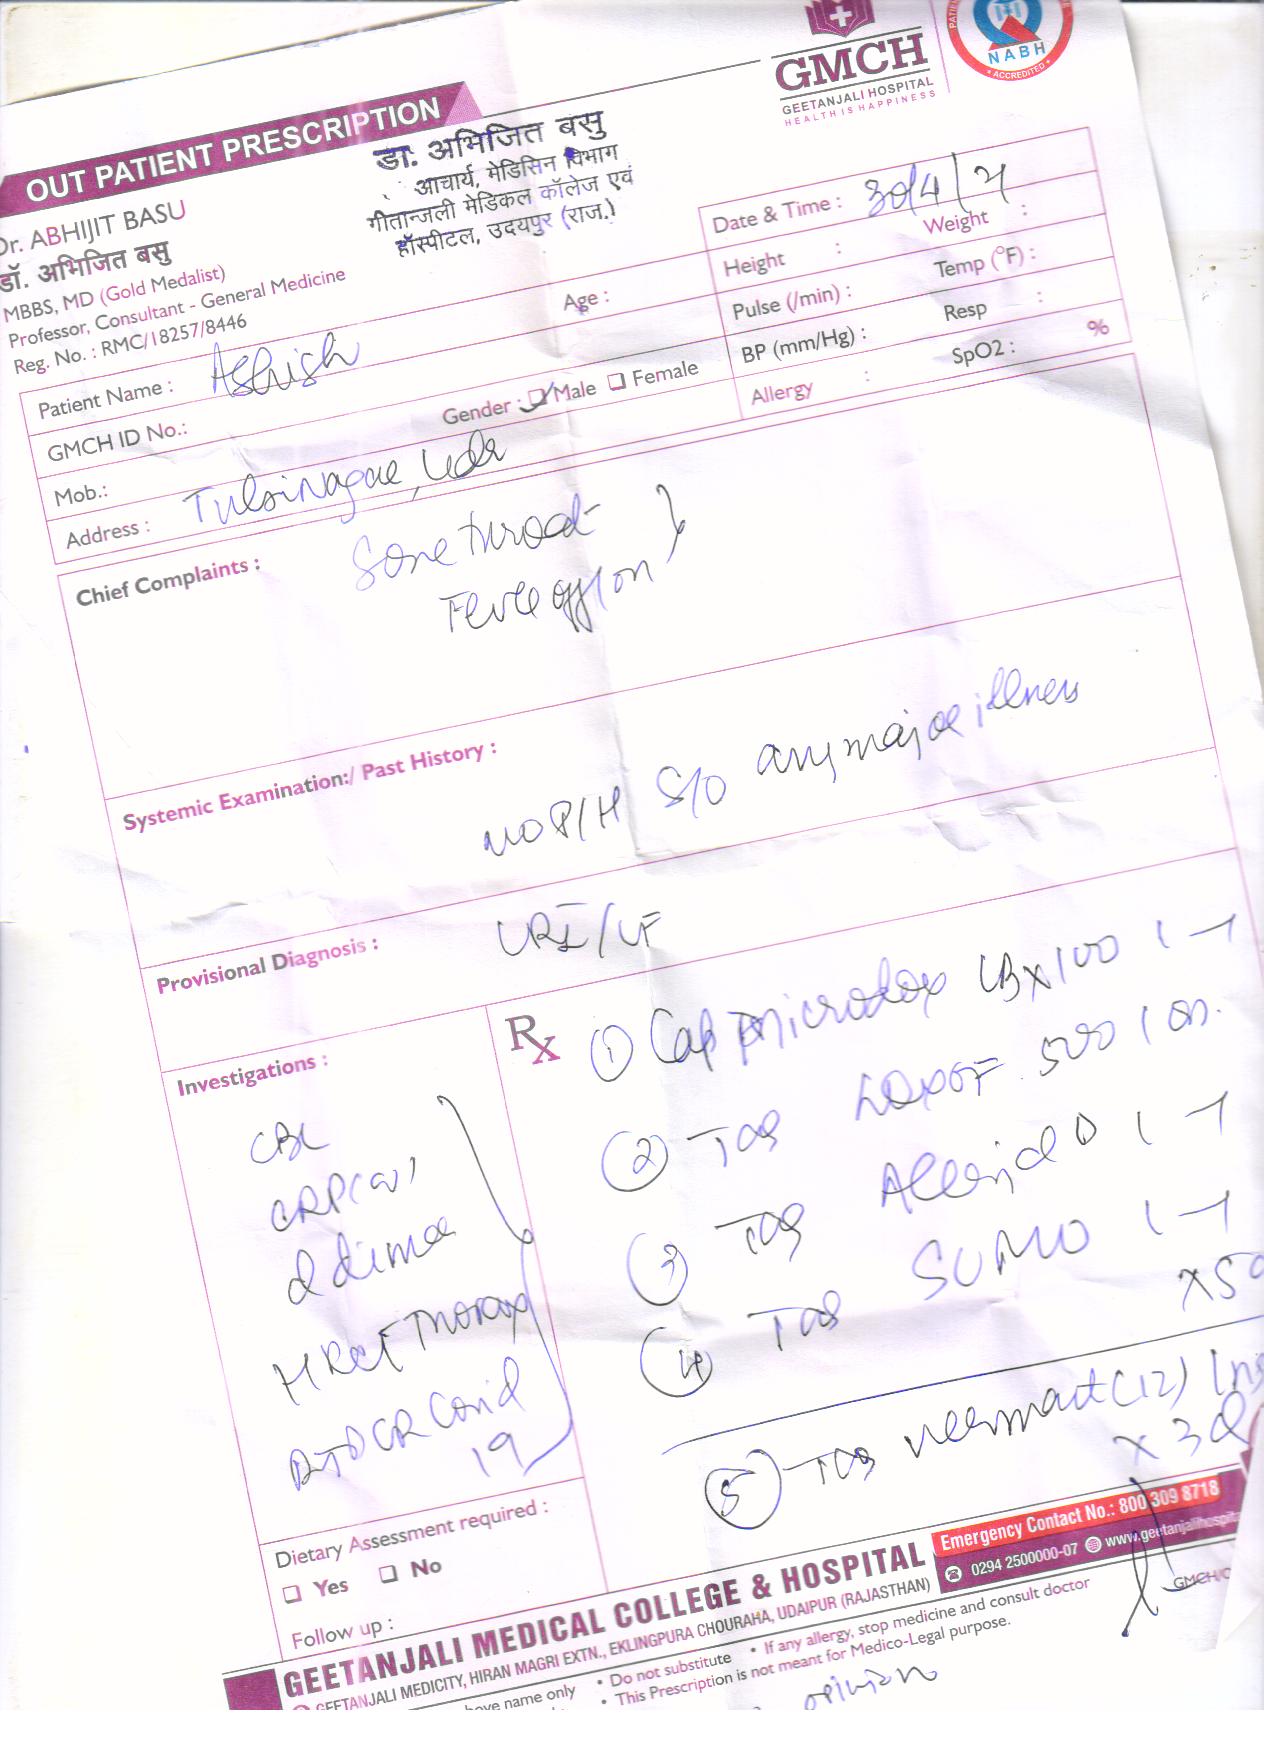 OUT PATIENT PRESCRIPTION
GMCH
GEETANJALI HOSPITAL
HEALTH IS HAPPINESS
NABH
ACCREDITED
डा. अभिजित बसु
आचार्य, मेडिसिन विभाग
गीतान्जली मेडिकल कॉलेज एवं
हॉस्पीटल, उदयपुर (राज.)
Dr. ABHIJIT BASU
डॉ. अभिजित बसु
MBBS, MD (Gold Medalist)
Professor, Consultant - General Medicine
Reg. No. : RMC/18257/8446
Date & Time : 30/4/
Height : Weight :
Pulse (/min) : Temp (°F) :
BP (mm/Hg) : Resp :
Allergy : SpO2 : %
Patient Name : Ashish Age :
GMCH ID No.: Gender : Male Female
Mob.:
Address : Tulsi Nagar, Udr
Chief Complaints : Sore throat
Fever off/on
Systemic Examination:/ Past History :
NO P/H S/O any major illness
Provisional Diagnosis : URI/LF
Investigations :
CBC
CRP(Q)
d dimer
HRCT Thorax
RTPCR Covid
19
Rx
① Cap Microdox LBX 100 1 - 1
② Tab LOXOF 500 1 OD.
③ Tab Allerjid D 1 - 1
④ Tab SUMO 1 - 1
x 5
⑤ Tab (12)
x 3d
Dietary Assessment required :
Yes No
Follow up :
Emergency Contact No.: 800 309 8718
0294 2500000-07 www.geetanjalihospita
GEETANJALI MEDICAL COLLEGE & HOSPITAL
GEETANJALI MEDICITY, HIRAN MAGRI EXTN., EKLINGPURA CHOURAHA, UDAIPUR (RAJASTHAN)
above name only • Do not substitute • If any allergy, stop medicine and consult doctor
• This Prescription is not meant for Medico-Legal purpose.
GMCH/O
opinion